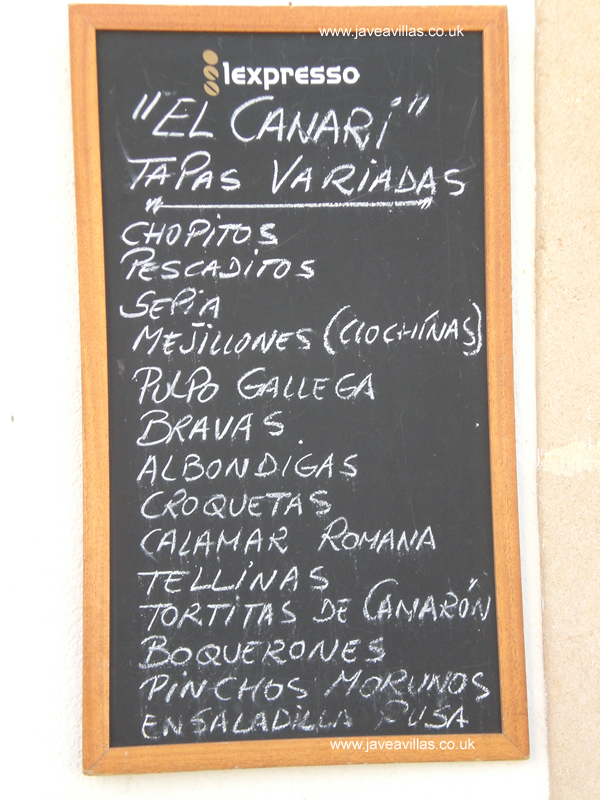 www.javeavillas.co.uk
lexpresso
"EL CANARi"
TAPAS VARIADAS
CHOPITOS
PESCADITOS
SEPIA
MEJILLONES (CLOCHÍNAS)
PULPO GALLEGA
BRAVAS.
ALBONDIGAS
CROQUETAS
CALAMAR ROMANA
TELLINAS
TORTITAS DE CAMARÓN
BOQUERONES
PINCHOS MORUNOS
ENSALADILLA RUSA
www.javeavillas.co.uk